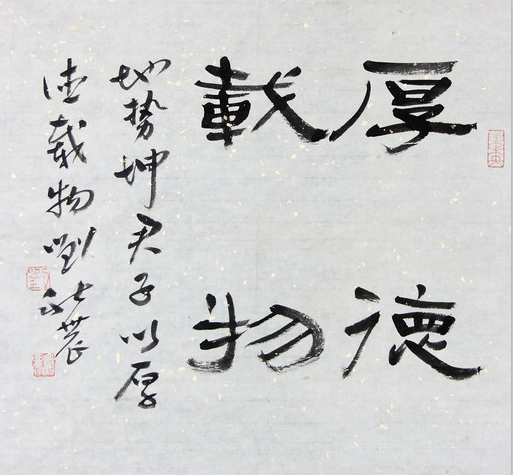 厚德
載物
地势坤君子以厚
德載物劉壯農